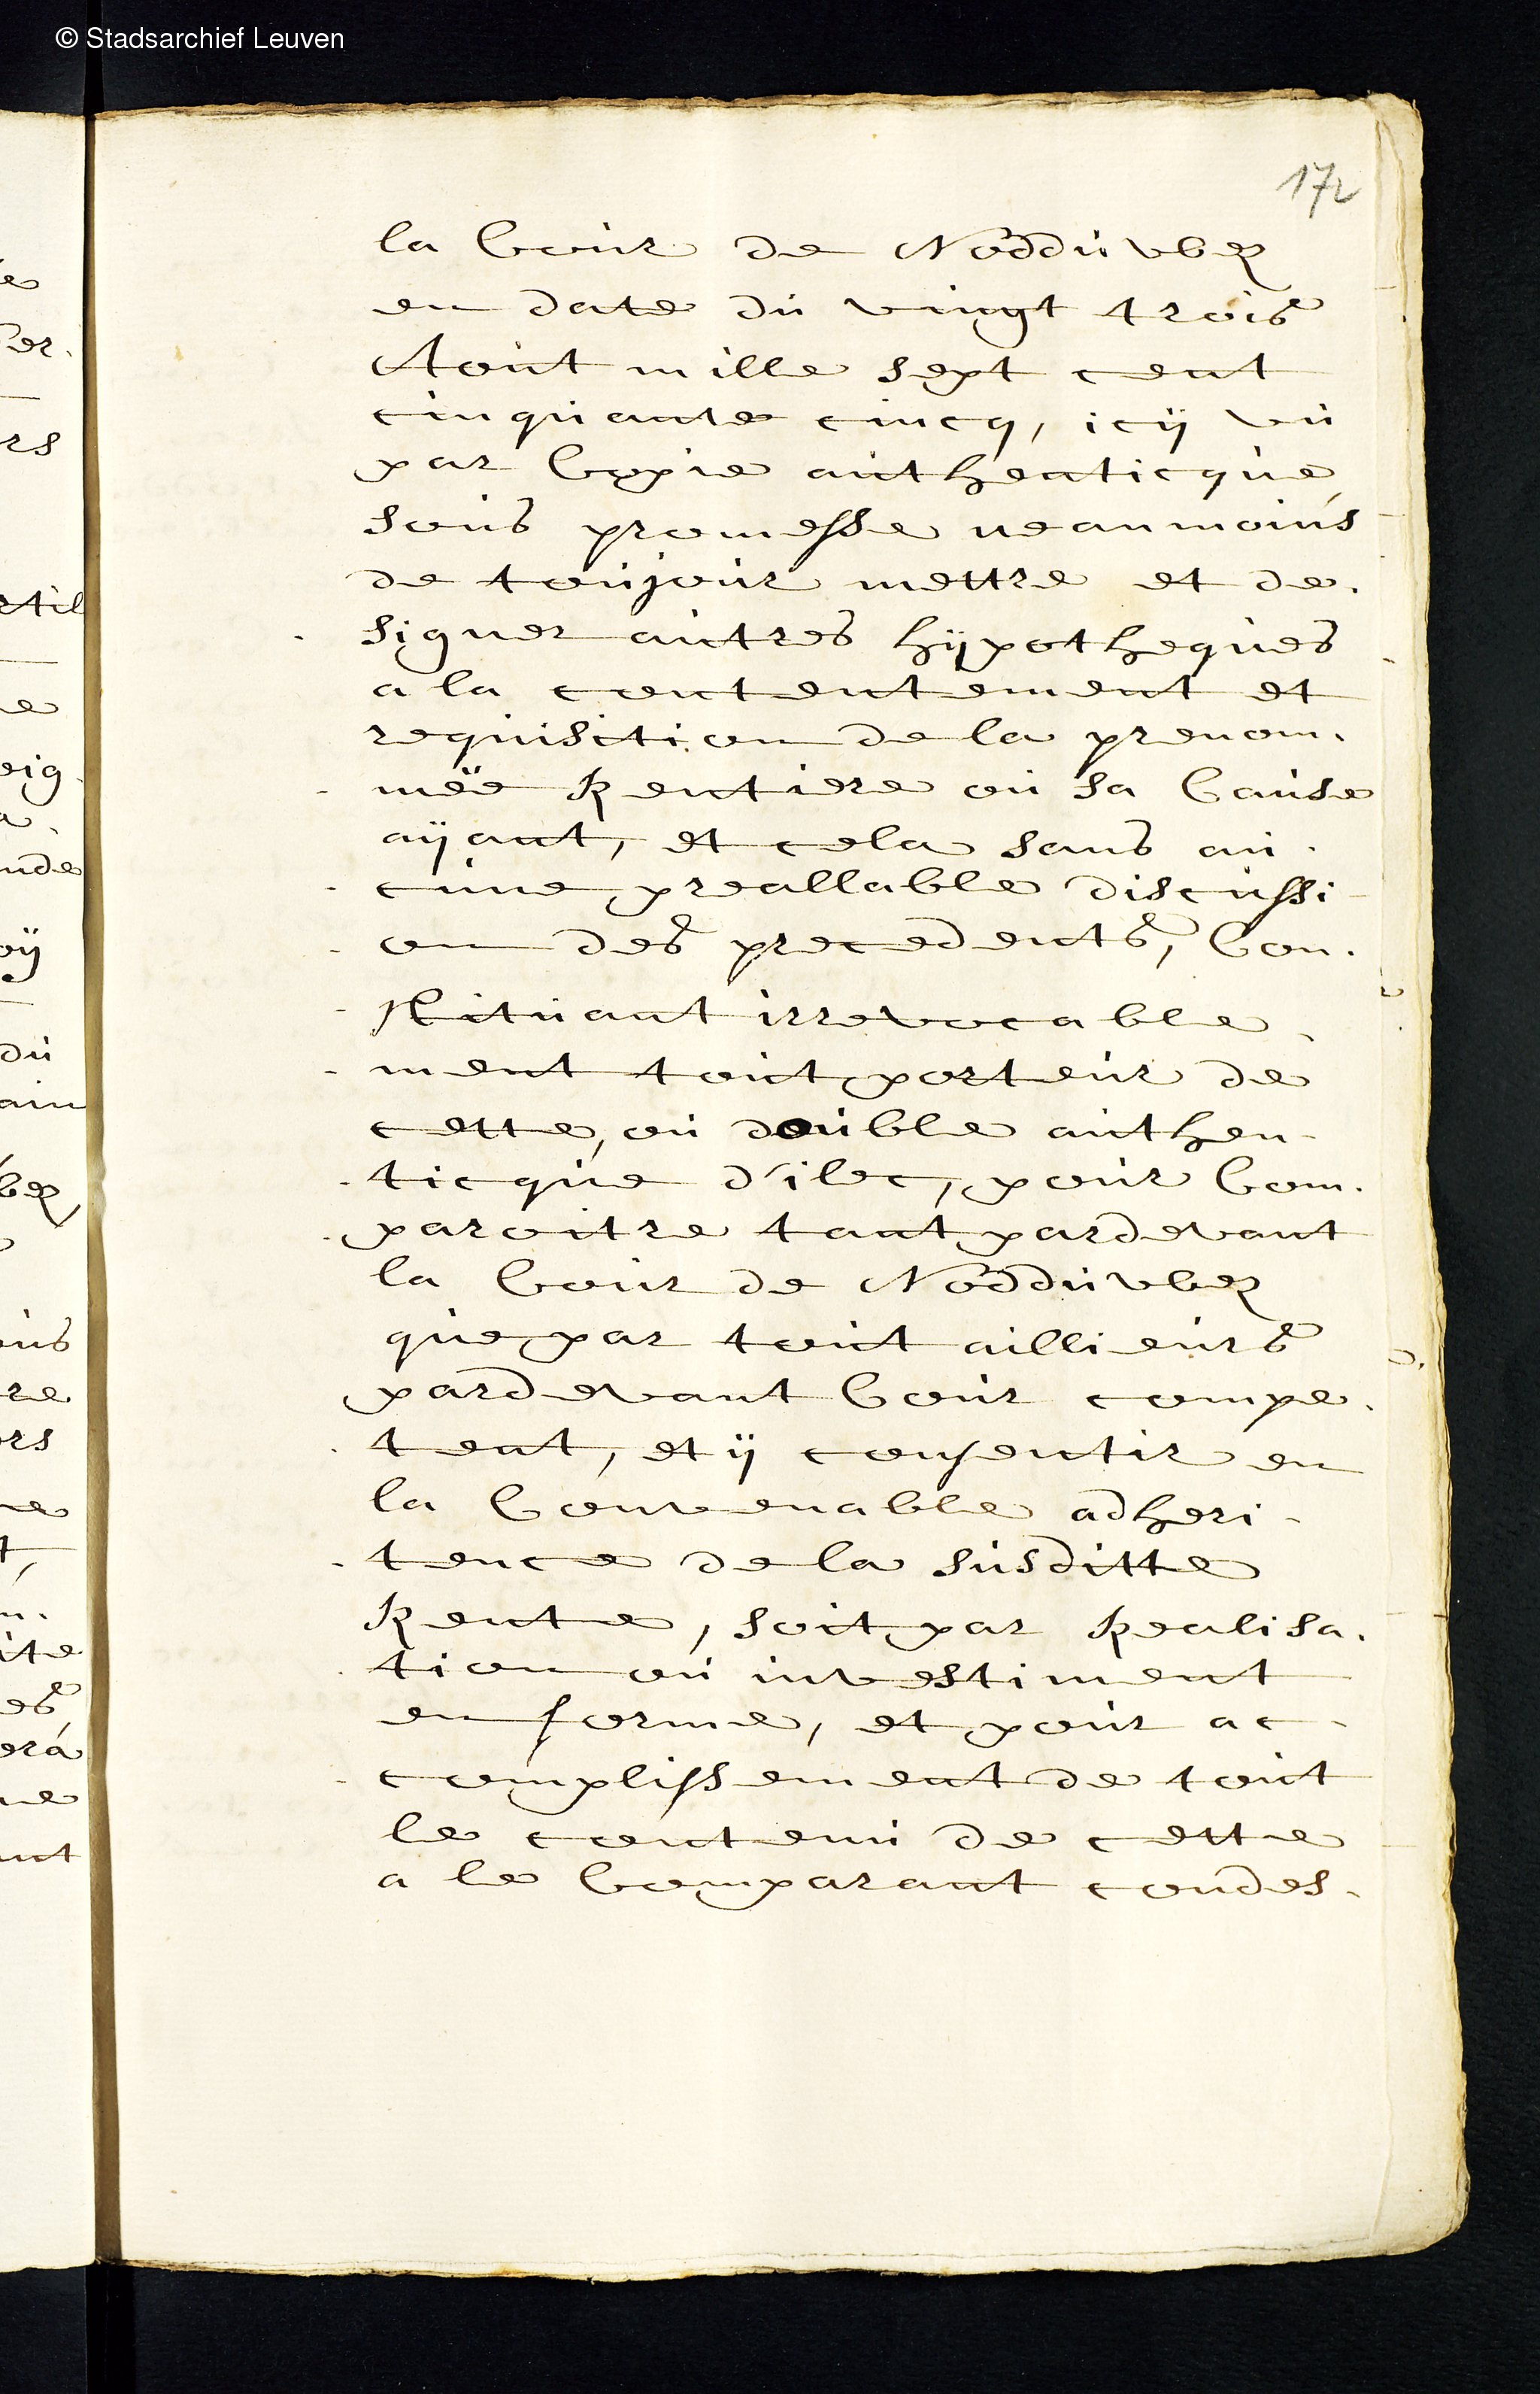 © Stadsarchief Leuven
172
la Cour de Nodduwez
en date du vingt trois
Aout mille sept cent
cinquante cincq, icÿ vu
par Copie authenticque,
sous promesse neanmoins
de toujour mettre et de.
signer autres hÿpotheques
a la contentement et
requisition de la prenom.
mëe Rentiere ou sa Cause
aÿant, et cela sans au.
cune preallable discussi-
on des precedents, Con.
stituant irrevocable.
ment tout porteur de
cette, ou double authen-
ticque d'ilec, pour Com.
paroitre tant pardevant
la Cour de Nodduwez
que par tout aillieurs
pardevant Cour compe.
tent, et ÿ consentir en
la Convenable adheri-
tence de la susditte
Rente, soit par Realisa.
tion ou investiment
en forme, et pour ac-
complissement de tout
le contenu de cette
a le Comparant condes.